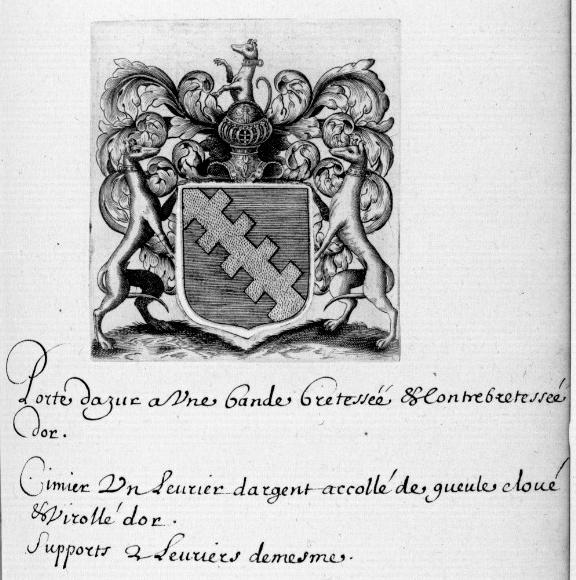 Porte dazur a Vne bande bretesseé & Contrebretesseé
dor.
Cimier Vn Leurier dargent accollé de gueule cloué
& Virollé dor.
Supports 2 Leuriers demesme.